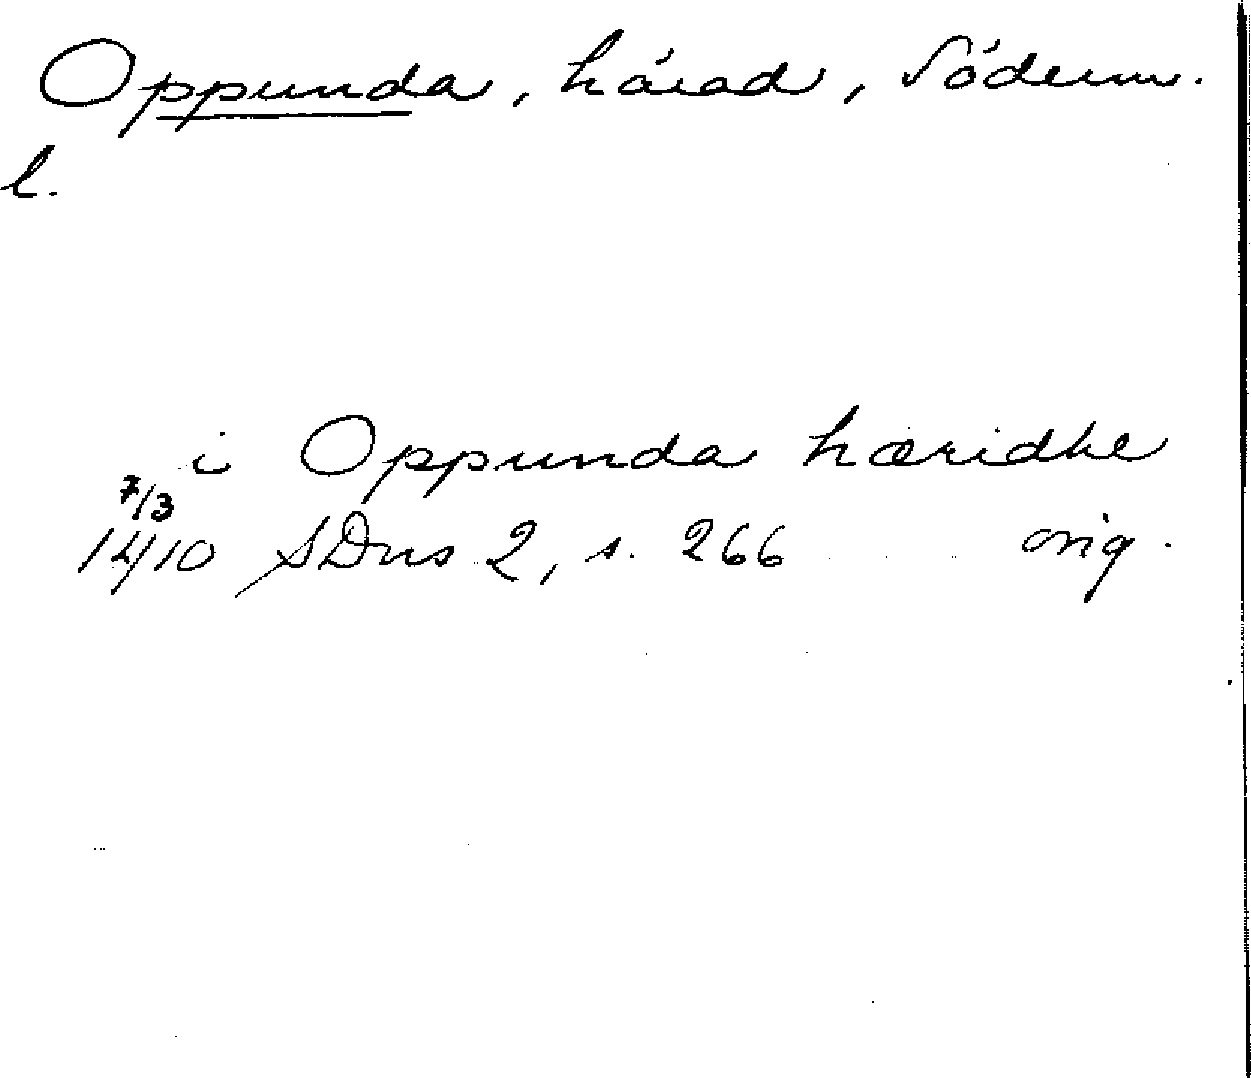 Oppunda, härad, Söderm.
l.
i Oppunda hæridhe
7/3
1410 SDns 2, s. 266 orig.